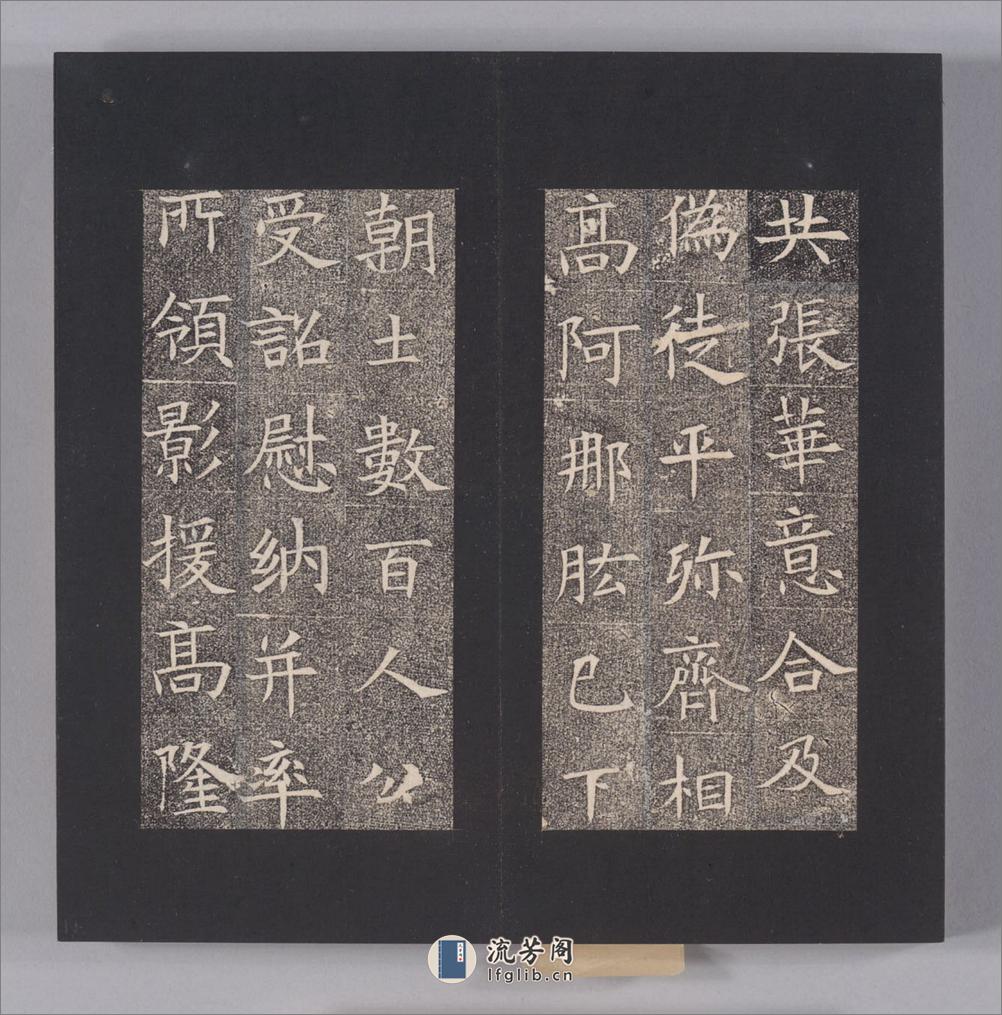 共張華意合及
偽徒平弥齊相
髙阿那肱已下
朝士數百人公
受詔慰納并率
所領影援髙隆
流芳阁
lfglib.cn